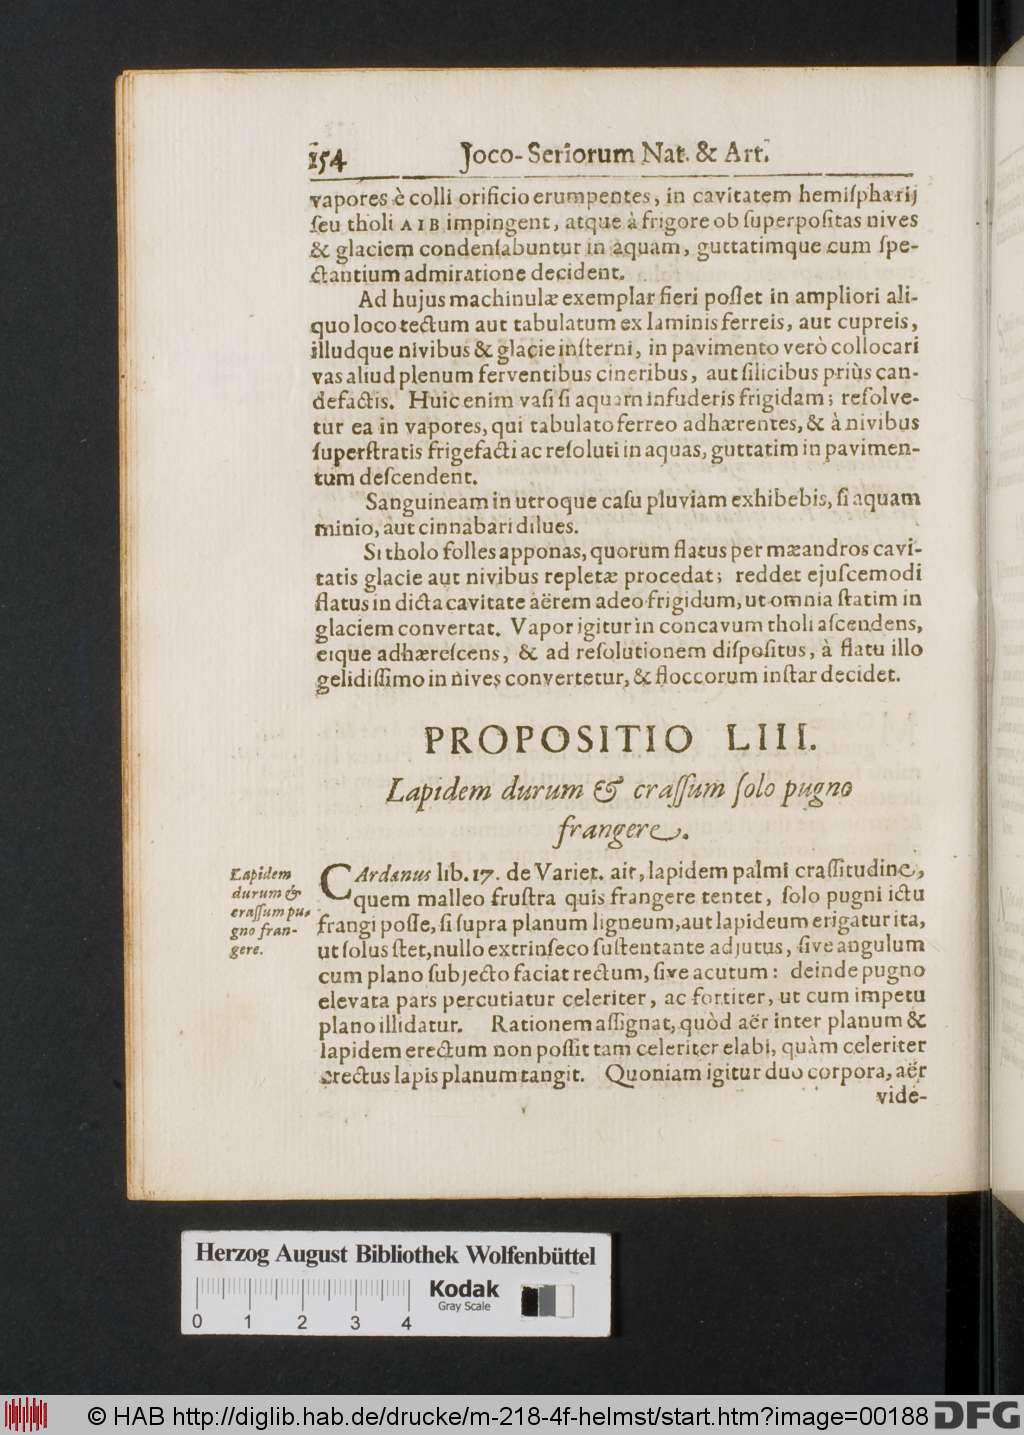 154 Joco-Seriorum Nat. & Art.
vapores è colli orificio erumpentes, in cavitatem hemiſphærij
ſeu tholi AIB impingent, atque à frigore ob ſuperpoſitas nives
& glaciem condenſabuntur in aquam, guttatimque cum ſpe-
ctantium admiratione decident.
Ad hujus machinulæ exemplar fieri poſſet in ampliori ali-
quo loco tectum aut tabulatum ex laminis ferreis, aut cupreis,
illudque nivibus & glacie inſterni, in pavimento verò collocari
vas aliud plenum ferventibus cineribus, aut ſilicibus priùs can-
defactis. Huic enim vaſi ſi aquam infuderis frigidam; reſolve-
tur ea in vapores, qui tabulato ferreo adhærentes, & à nivibus
ſuperſtratis frigefacti ac reſoluti in aquas, guttatim in pavimen-
tum deſcendent.
Sanguineam in utroque caſu pluviam exhibebis, ſi aquam
minio, aut cinnabari dilues.
Si tholo folles apponas, quorum flatus per mæandros cavi-
tatis glacie aut nivibus repletæ procedat; reddet ejuſcemodi
flatus in dicta cavitate aërem adeo frigidum, ut omnia ſtatim in
glaciem convertat. Vapor igitur in concavum tholi aſcendens,
eique adhæreſcens, & ad reſolutionem diſpoſitus, à flatu illo
gelidiſſimo in nives convertetur, & floccorum inſtar decidet.
PROPOSITIO LIII.
Lapidem durum & craſſum ſolo pugno
frangere.
Lapidem
durum &
craſſum pu-
gno fran-
gere.
CArdanus lib. 17. de Variet. ait, lapidem palmi craſſitudine,
quem malleo fruſtra quis frangere tentet, ſolo pugni ictu
frangi poſſe, ſi ſupra planum ligneum, aut lapideum erigatur ita,
ut ſolus ſtet, nullo extrinſeco ſuſtentante adjutus, ſive angulum
cum plano ſubjecto faciat rectum, ſive acutum: deinde pugno
elevata pars percutiatur celeriter, ac fortiter, ut cum impetu
plano illidatur. Rationem aſſignat, quòd aër inter planum &
lapidem erectum non poſſit tam celeriter elabi, quàm celeriter
erectus lapis planum tangit. Quoniam igitur duo corpora, aër
vide-
Herzog August Bibliothek Wolfenbüttel
Kodak
Gray Scale
0 1 2 3 4
© HAB http://diglib.hab.de/drucke/m-218-4f-helmst/start.htm?image=00188 DFG